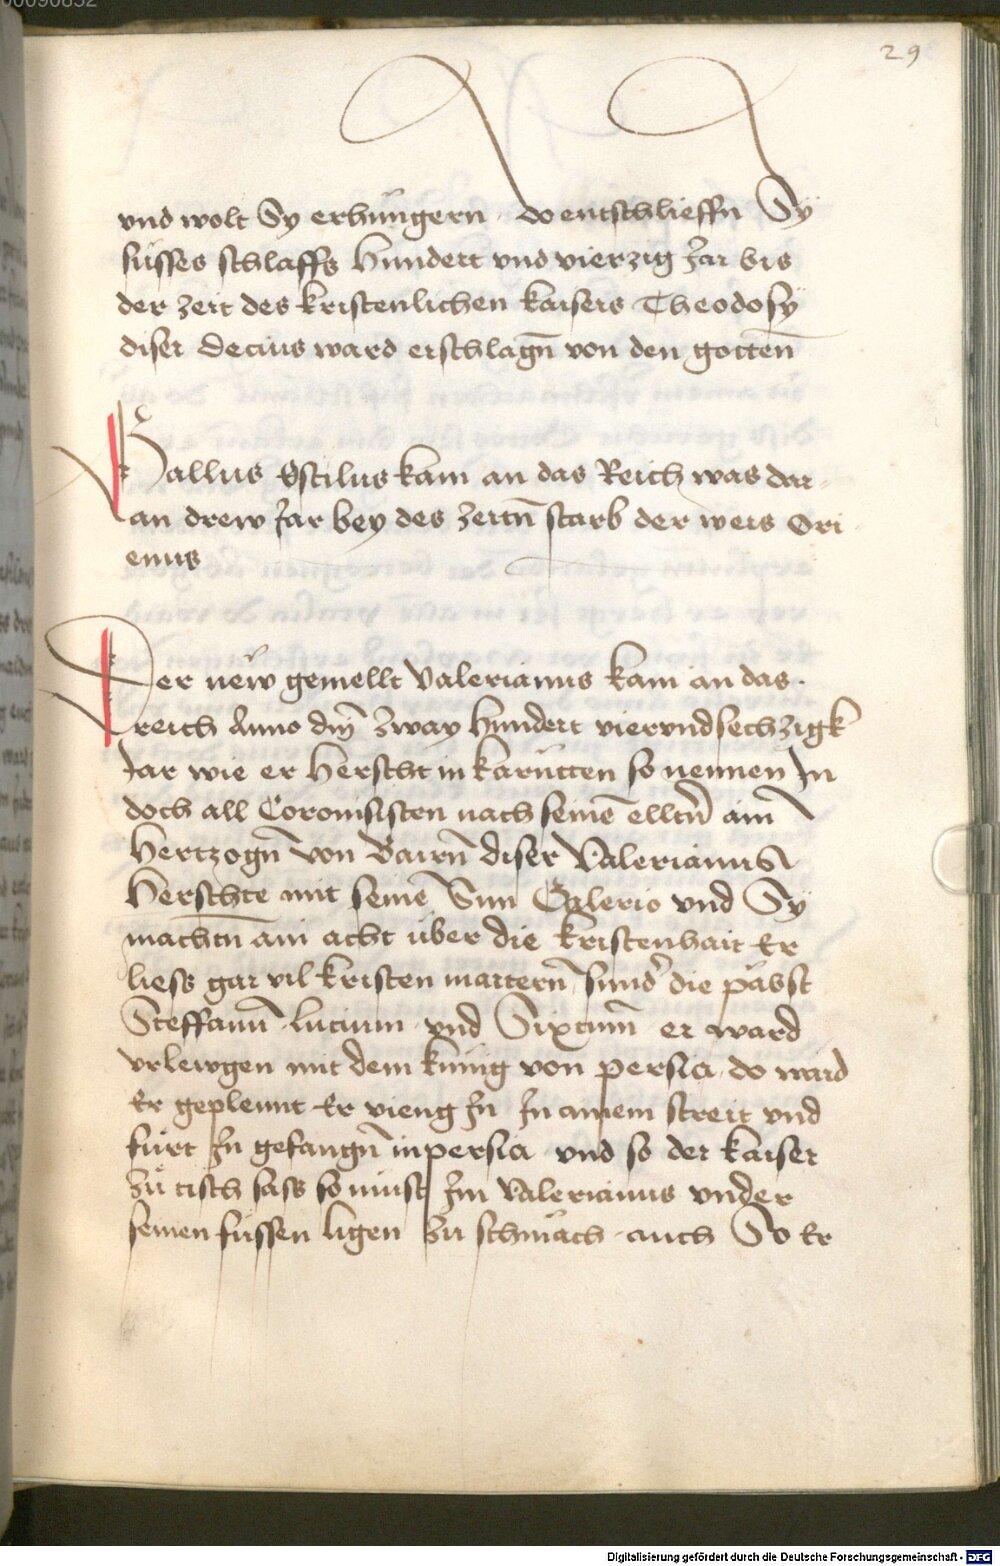 00090832
29
vnd wolt Sy erhűngern · do entschlieffn Sÿ
süsses schlaffs Hundert vnd vierzig Jar bis
der zeit des kristenlichen kaisers Theodosÿ
diser Decius ward erschlagn̄ von den gotten̄
Gallus Ostilus kam an das Reich was dar-
an drew Jar bey des zeitn̄ starb der weis Ori
enus
Der new gemellt Valerianus kam an das
reich Anno dm̄ zway Hundert viervndsechzigk
Jar wie er Herscht in karnͤtten so nennen In
doch all Coronisisten nach seinē elltn̄ ain
Hertzogn̄ von Bairn̄ diser Valerianus
Herschte mit seinē Sun Galerio vnd Sÿ
machtn̄ ain acht über die kristenhait Er
liess gar vil kristen martern̄ sund' die päbst
Steffanū · lucium · vnd Sixtum̄ er ward
vrlewgen mit dem kűnig von persia · do ward
Er geplennt Er vieng In In ainem streit vnd
fürt In gefangn̄ in persia vnd so der kaiser
zů tisch sass so müst Im Valerianus vnder
seinen füssen ligen zu schmach · auch So Er
Digitalisierung gefördert durch die Deutsche Forschungsgemeinschaft - DFG